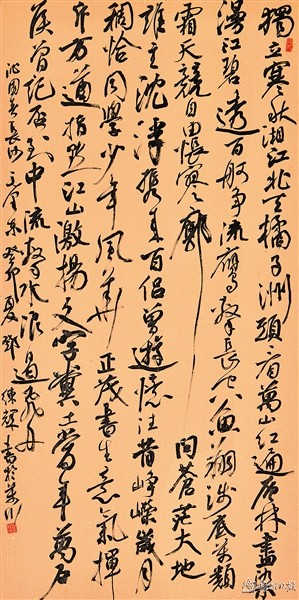 獨立寒秋湘江北去橘子洲頭看萬山紅遍層林盡染
漫江碧透百舸爭流鷹擊長空魚翔淺底萬類
霜天競自由悵寥廓問蒼茫大地
誰主沈浮携來百侶曾遊憶往昔崢嶸歲月
稠恰同學少年風華正茂書生意氣揮
斥方遒指點江山激揚文字糞土當年萬户
侯曾記否到中流擊水浪遏飛舟
沁園春長沙 癸卯夏鄧
輝書於